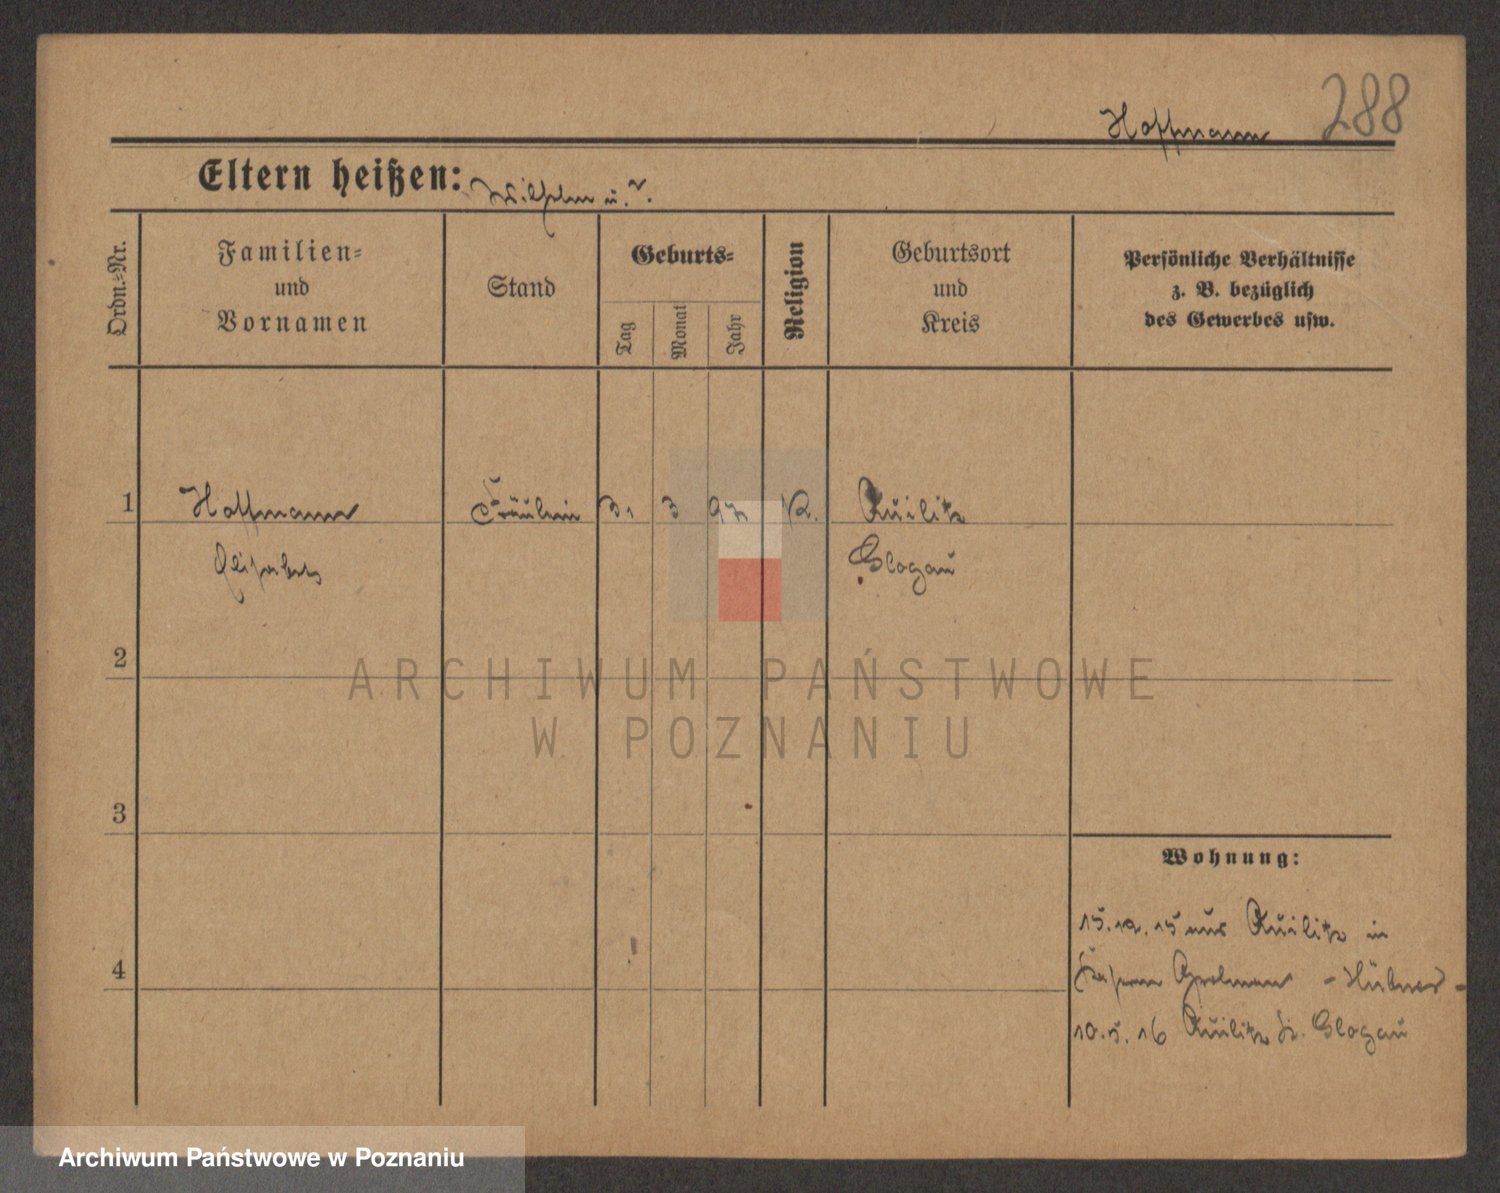 Hoffmann 288
Eltern heißen: Wilhelm u. ?.
Ordn.=Nr.
Familien=
und
Vornamen
Stand
Geburts=
Tag
Monat
Jahr
Religion
Geburtsort
und
Kreis
Persönliche Verhältnisse
z. B. bezüglich
des Gewerbes usw.
1 Hoffmann Fräulein 31 3 97 K. Quilitz
Elisabeth Glogau
2
ARCHIWUM PAŃSTWOWE
W POZNANIU
3
Wohnung:
15.12.15 aus Quilitz in
4
Kasern Grolman - Hübner -
10.5.16 Quilitz Kr. Glogau
Archiwum Państwowe w Poznaniu